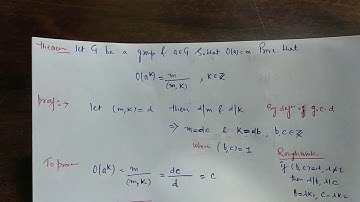 Theorem Let G be a group & a∈G s.that O(a)=m Prove that
O(aᵏ) = m/(m,k) , k∈Z
Proof:→ let (m,k)=d then d|m & d|k By defⁿ of g.c.d
⇒ m=dc & k=db, b,c∈Z
where (b,c)=1
To prove
O(aᵏ) = m/(m,k) = dc/d = c
Roughwork
if (b,c)=λ, λ≠1
then λ|b, λ|c
b=λk₁, c=λk₂